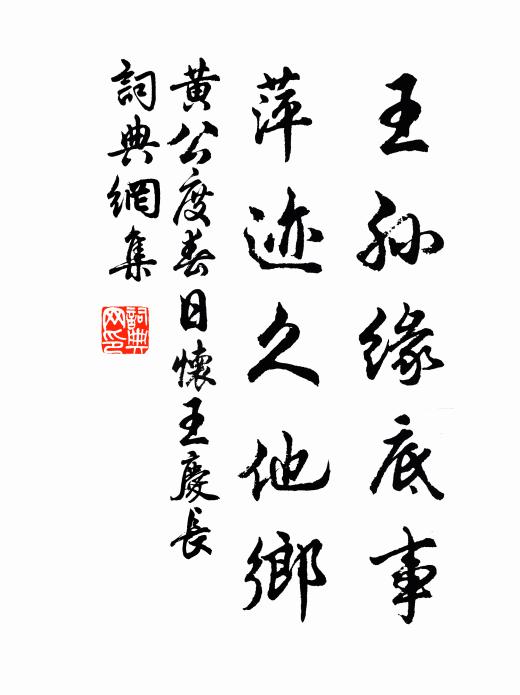 王孙缘底事
萍迹久他鄉
黃公度春日懷王慶長
詞典網集
詞典网印